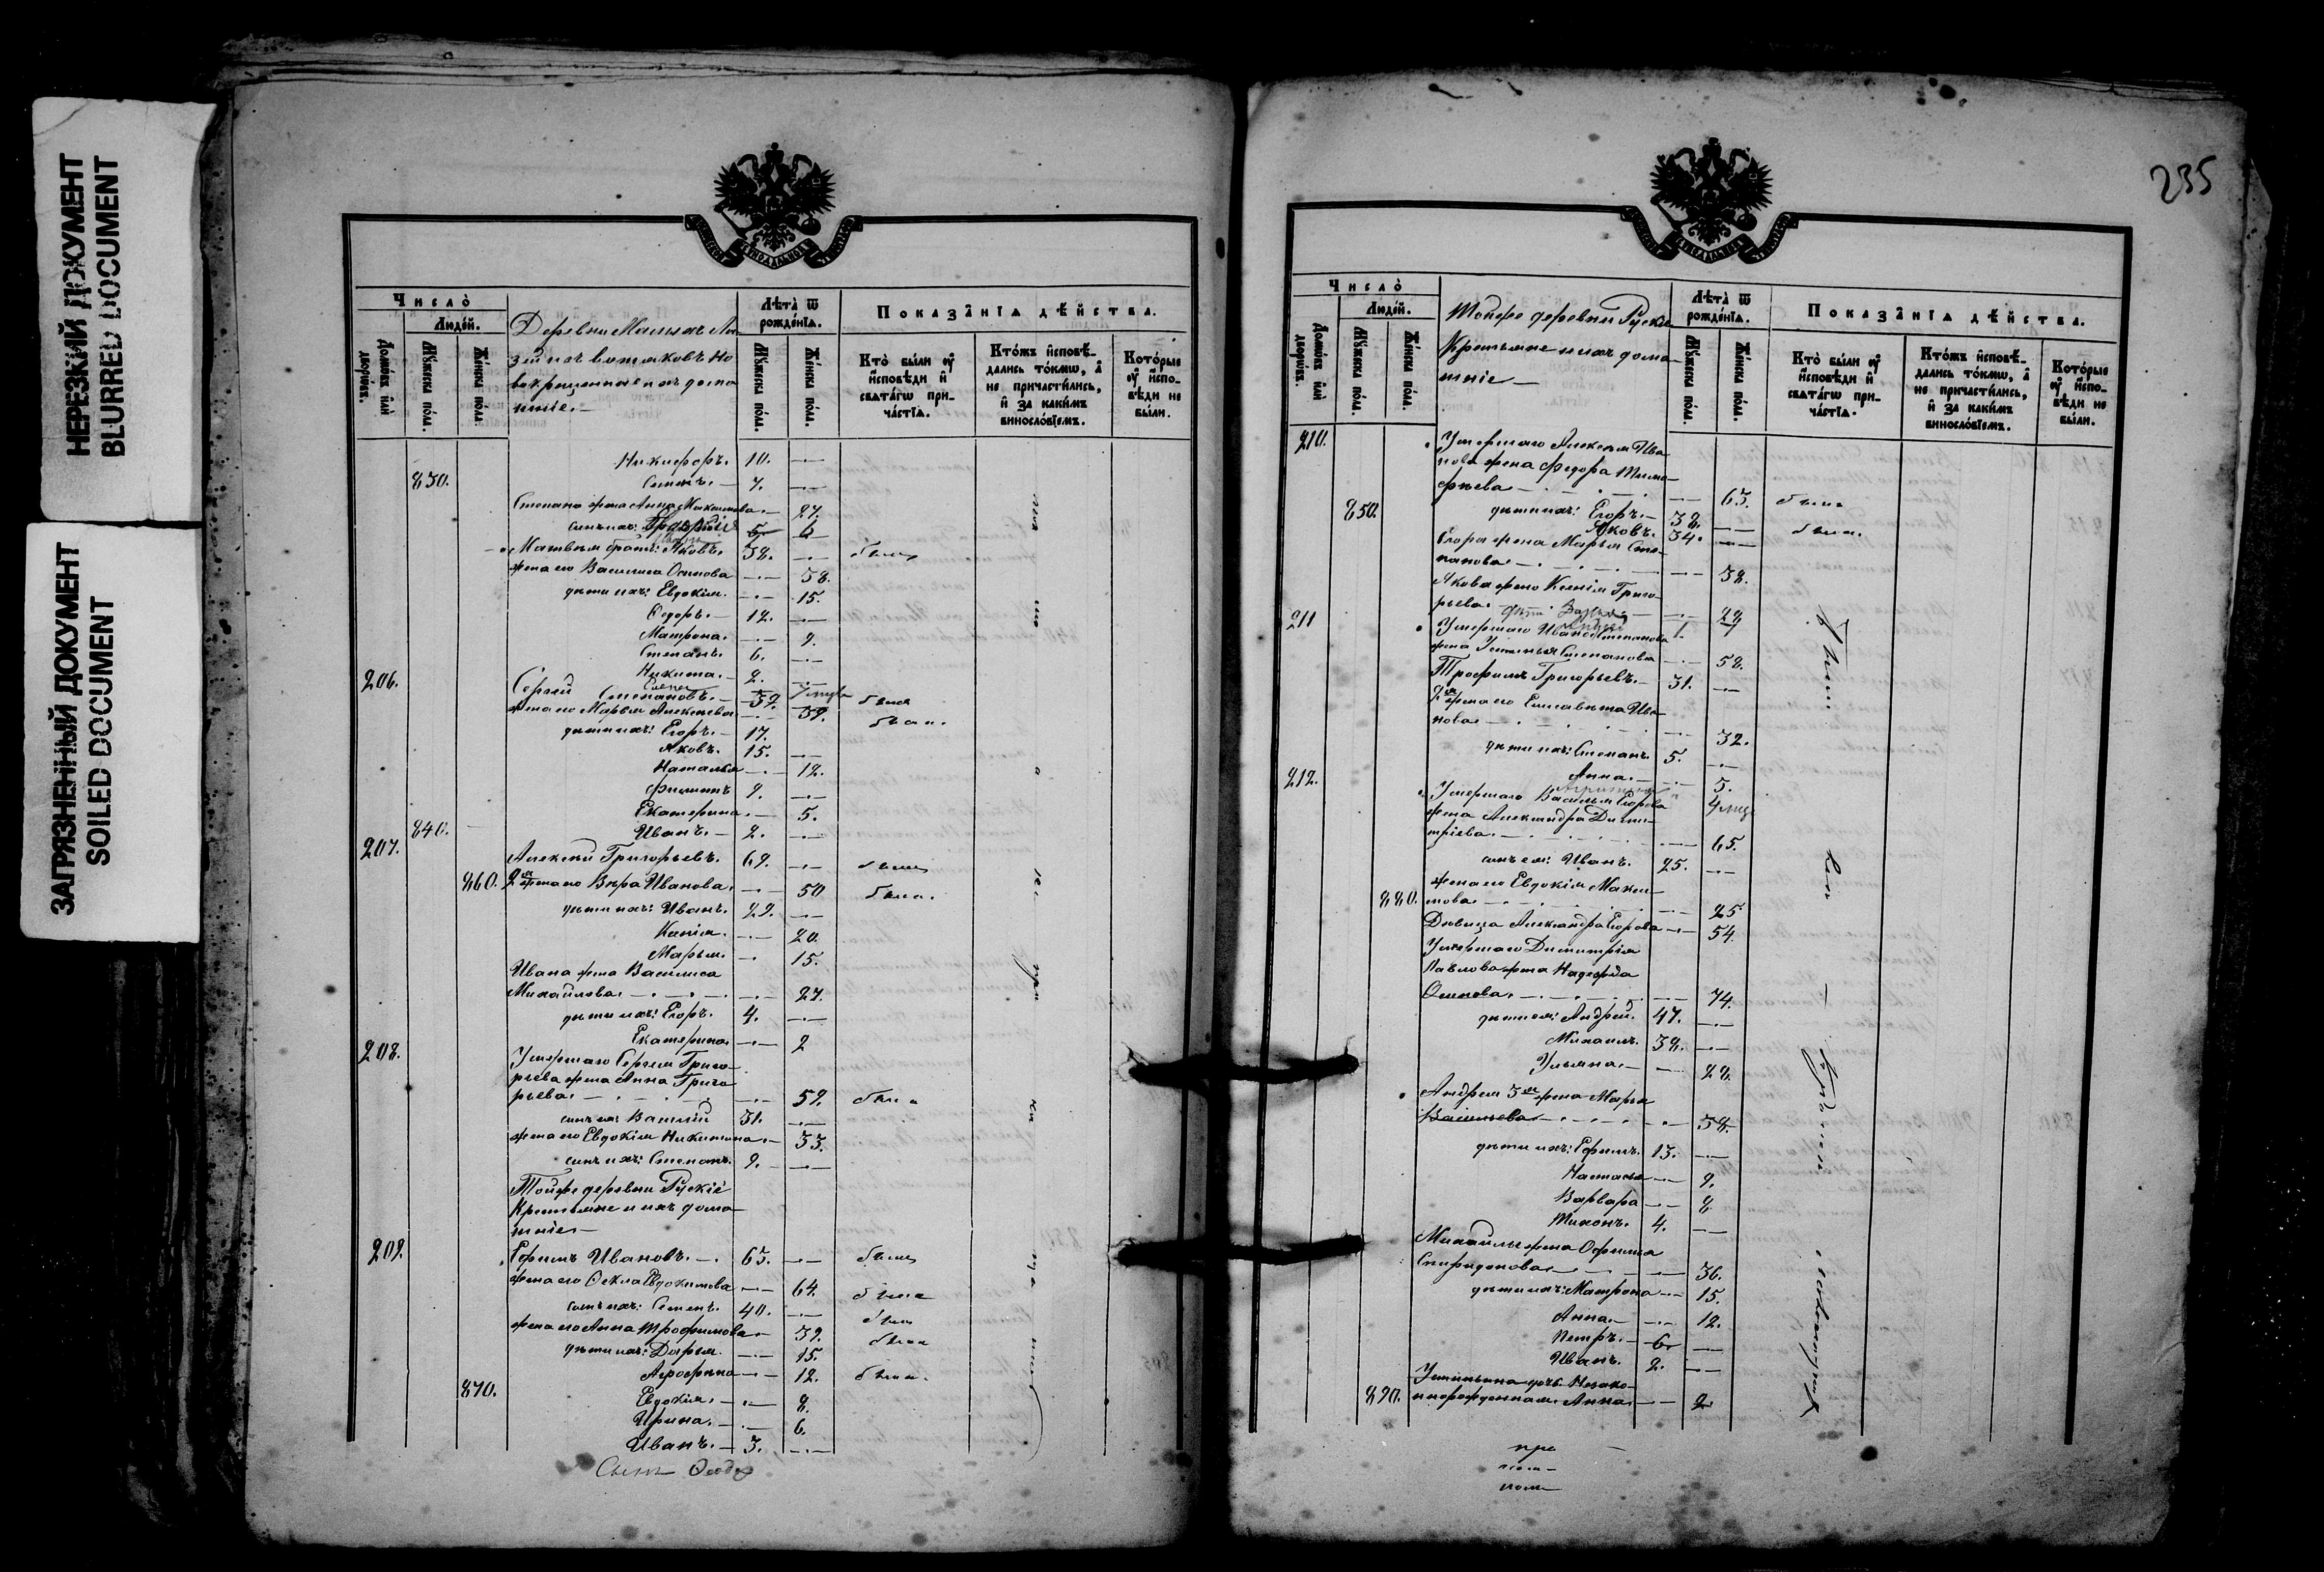 НЕРЕЗКИЙ ДОКУМЕНТ
BLURRED DOCUMENT
ЗАГРЯЗНЕННЫЙ ДОКУМЕНТ
SOILED DOCUMENT
Число̀
Людей.
Домовъ илѝ дворовъ.
Мꙋжеска пола.
Женска пола.
Деревни Малыхъ
вотяковъ Но
вокрещенные и ихъ дома
шніе. —
Лѣта̀ ѿ рожденїѧ.
Мꙋжеска пола.
Женска пола.
Показанїѧ дѣйства.
Кто̀ были ᲂу҆ исповѣди и свѧтагѡ причастїѧ.
Кто́жъ исповѣдались токмѡ, а не причастились, и за какимъ винословїемъ.
Которые ᲂу҆ исповѣди не были.
Никифоръ. 10.
830. Семенъ. — 7.
Степана жена Анна Максимова. — 27.
сынъ ихъ:
Матвѣя братъ: Яковъ. 38. былъ
жена его Василиса Осипова — 38.
дѣти ихъ: Евдокія. — 15.
Ѳедоръ. — 12.
Матрона. — 9.
Степанъ. 6.
Никита. — 2.
206. Сергей Степановъ. — 39. былъ
жена его Марья Алексѣева. — 39. была.
дѣти ихъ: Егоръ. — 17.
Яковъ. 15.
Наталья — 12.
Филиппъ 9.
Екатерина. — 5.
840. Иванъ. — 2.
207. Алексѣй Григорьевъ. 69. былъ
860. 2я жена его Вѣра Иванова. — 50 была.
дѣти ихъ: Иванъ. 29.
Ксенія. — 20.
Марья. — 15.
Ивана жена Василиса
Михайлова. — 27.
дѣти ихъ: Егоръ. 4.
Екатерина. — 2
208. Умершаго Сергея Григо-
рьева жена Анна Григо
рьева. — 59. была
сынъ ея: Василій 31.
жена его Евдокія Никитина. — 33.
сынъ ихъ: Степанъ. 9.
Тойже деревни Рускіе
Крестьяне и ихъ дома-
шніе. —
209. Ефимъ Ивановъ. — 65. былъ
жена его Ѳекла Евдокимова — 64. была
сынъ ихъ: Семенъ. 40. былъ
жена его Анна Трофимова. — 39. была
дѣти ихъ: Дарья. — 15.
Агрофена — 12. была.
870. Евдокія. — 8.
Ирина. — 6.
Иванъ. — 3.
235
Число̀
Людей.
Домовъ илѝ дворовъ.
Мꙋжеска пола.
Женска пола.
Тойже деревни Рускіе
Крестьяне и ихъ дома-
шніе —
Лѣта̀ ѿ рожденїѧ.
Мꙋжеска пола.
Женска пола.
Показанїѧ дѣйства.
Кто̀ были ᲂу҆ исповѣди и свѧтагѡ причастїѧ.
Кто́жъ исповѣдались токмѡ, а не причастились, и за какимъ винословїемъ.
Которые ᲂу҆ исповѣди не были.
210. Умершаго Алексѣя Ива
нова жена Федора Тимо-
фѣева — 63. была
850. дѣти ихъ: Егоръ. — 38.
Яковъ. — 34. былъ.
Егора жена Марья Сте-
панова — 38.
Якова жена Ксенія Григо-
рьева. 29
211 Умершаго Ивана Степанова
жена Устинья Степанова — 58.
Трофимъ Григорьевъ. — 31.
2я жена его Елисавета Ива
нова — 32.
дѣти ихъ: Степанъ. 5.
Анна. — 5.
212. Умершаго Василья Егорова
жена Александра Дими-
тріева. — 65.
сынъ ея: Иванъ. 25.
жена его Евдокія Макси-
880. мова — 25
Дѣвица Александра Егорова — 54.
Умершаго Димитрія
Павлова жена Надежда
Осипова. — 74.
дѣти ея: Андрей. 47.
Михаилъ. 38.
Ульяна. — 28.
Андрея 3я жена Марья
Васильева — 38.
дѣти ихъ: Ефимъ. 13.
Настасья — 9.
Варвара — 8
Тихонъ. 4.
Михайлы жена Офимья
Спиридонова — 36.
дѣти ихъ: Матрона — 15.
Анна — 12.
Петръ. — 6.
Иванъ. 2.
Устиньина дочь Незако-
890. ннорожденная Анна — 2.